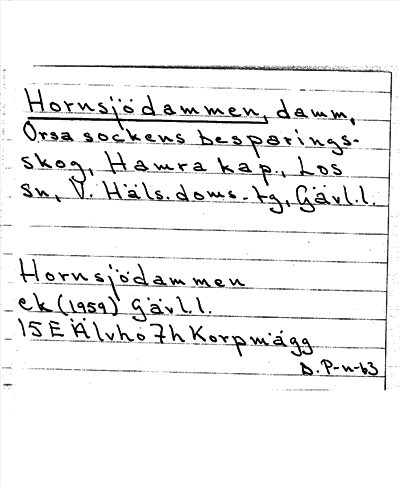 Hornsjödammen, damm,
Orsa sockens besparings-
skog, Hamra kap., Los
sn, V. Häls. doms. tg, Gävl.l.
Hornsjödammen
ek (1959) Gävl.l.
15E Älvho 7h Korpmägg
D. P-n-63